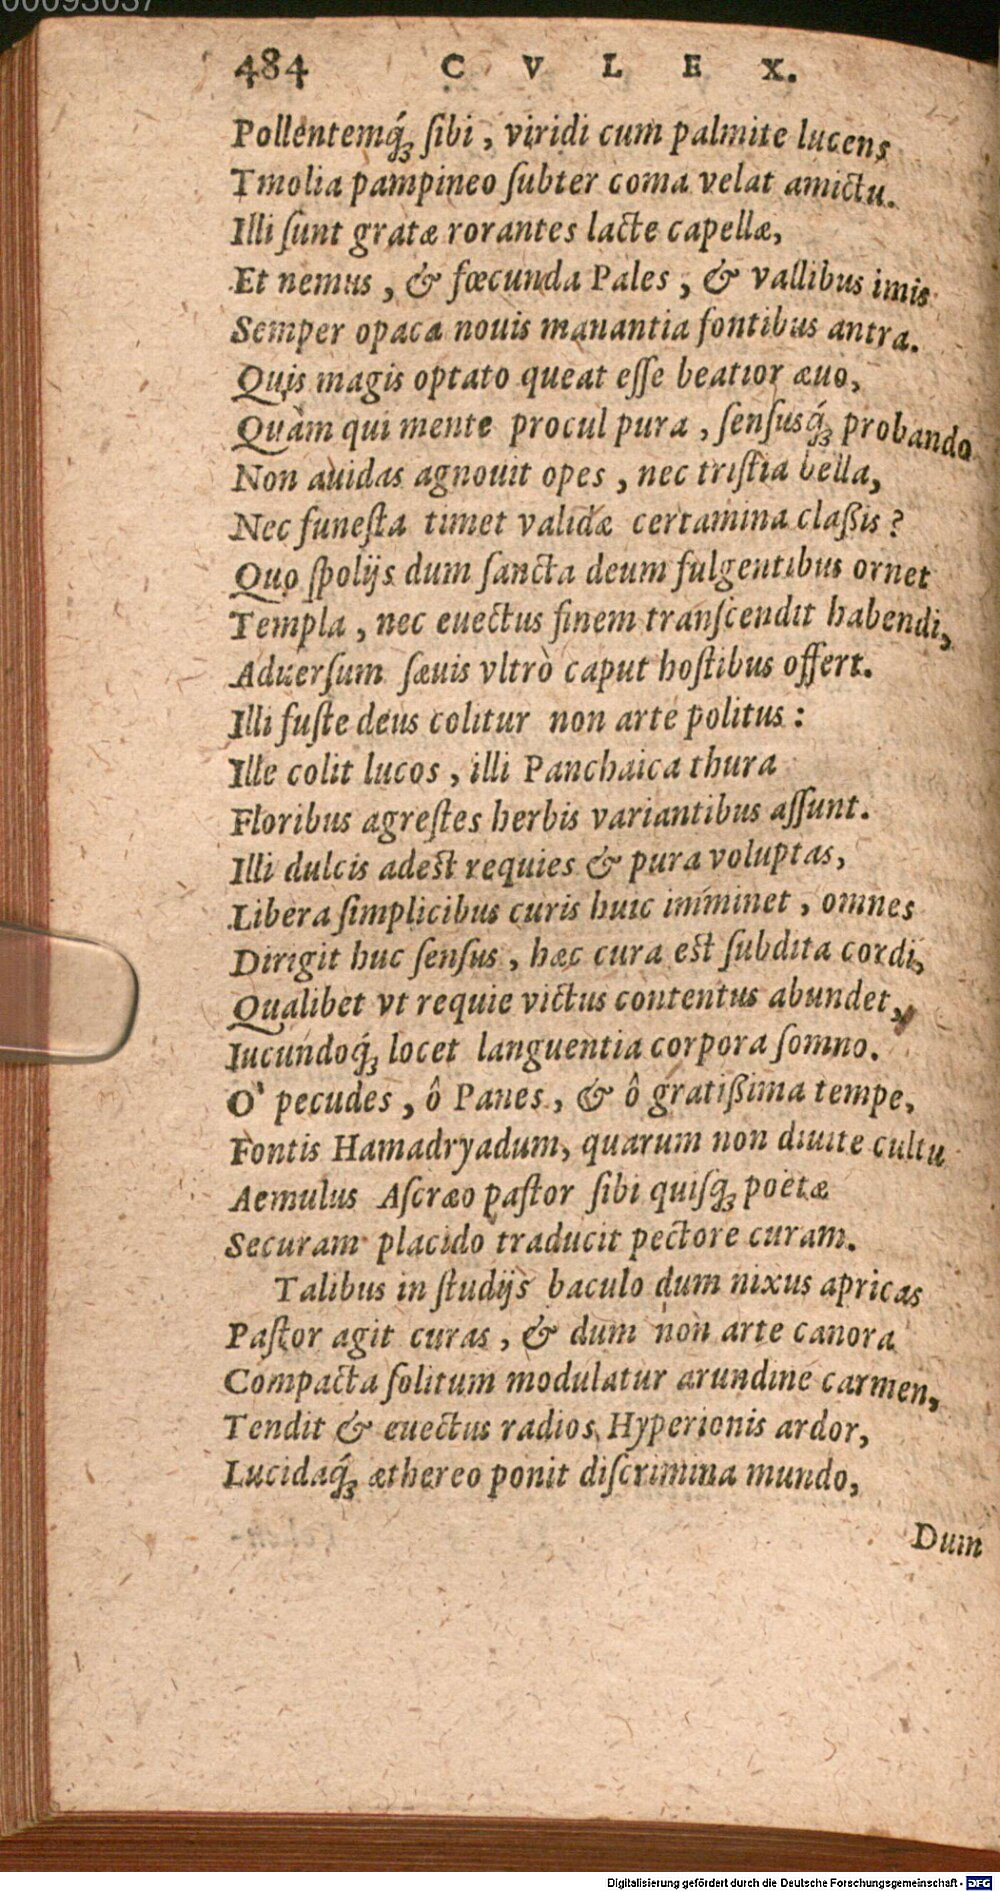 00093037
484 C V L E X.
Pollentemq́ꝫ ſibi, viridi cum palmite lucens
Tmolia pampineo ſubter coma velat amictu.
Illi ſunt gratæ rorantes lacte capellæ,
Et nemus, & fœcunda Pales, & vallibus imis
Semper opaca nouis manantia fontibus antra.
Quis magis optato queat eſſe beatior æuo,
Quàm qui mente procul pura, ſenſusq́ꝫ probando
Non auidas agnouit opes, nec triſtia bella,
Nec funeſta timet validæ certamina claßis?
Quo ſpolijs dum ſancta deum fulgentibus ornet
Templa, nec euectus finem tranſcendit habendi,
Aduerſum ſæuis vltrò caput hoſtibus offert.
Illi fuſte deus colitur non arte politus:
Ille colit lucos, illi Panchaica thura
Floribus agreſtes herbis variantibus aſſunt.
Illi dulcis adeſt requies & pura voluptas,
Libera ſimplicibus curis huic imminet, omnes
Dirigit huc ſenſus, hæc cura eſt ſubdita cordi,
Qualibet vt requie victus contentus abundet,
Iucundoq́ꝫ locet languentia corpora ſomno.
O' pecudes, ô Panes, & ô gratißima tempe,
Fontis Hamadryadum, quarum non diuite cultu
Aemulus Aſcræo paſtor ſibi quiſqꝫ poëtæ
Securam placido traducit pectore curam.
Talibus in ſtudijs baculo dum nixus apricas
Paſtor agit curas, & dum non arte canora
Compacta ſolitum modulatur arundine carmen,
Tendit & euectus radios Hyperionis ardor,
Lucidaq́ꝫ æthereo ponit diſcrimina mundo,
Dum
Digitalisierung gefördert durch die Deutsche Forschungsgemeinschaft - DFG